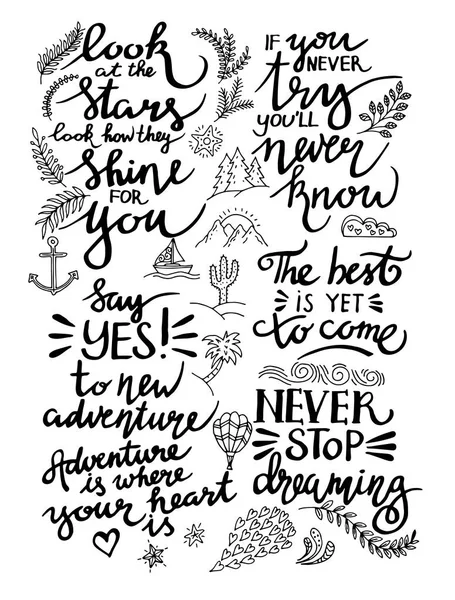 look
at the
stars
look how they
shine
FOR
you
say
YES!
to new
adventure
Adventure
is where
your heart
is
IF you
NEVER
try
YOU'LL
never
know
The best
IS YET
to come
NEVER
STOP
dreaming